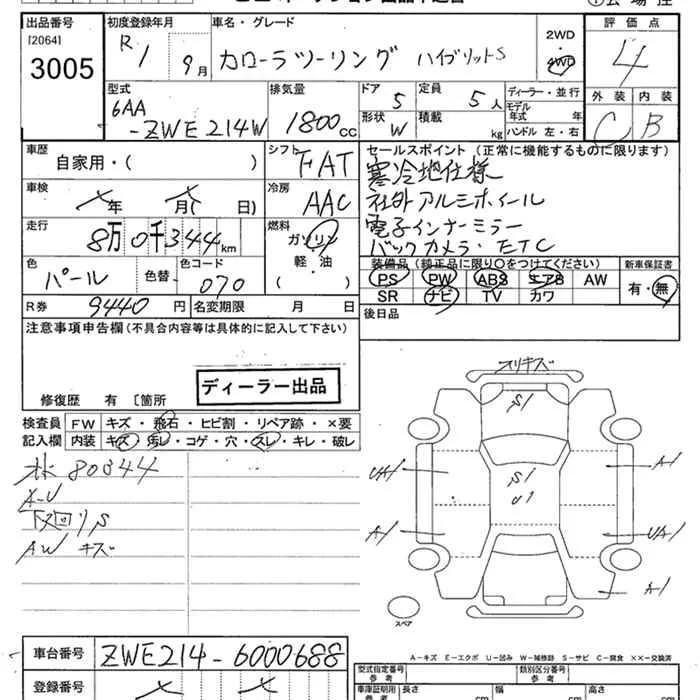 出品番号 初度登録年月 車名・グレード 2WD 評価点
[2064] R1 9月 カローラツーリング ハイブリットS 4WD 4
3005
型式 排気量 ドア 定員 ディーラー・並行 外装 内装
6AA 5 5人 モデル年式 年式
-ZWE214W 1800cc 形状 W 積載 kg ハンドル 左・右 C B
車歴 シフト セールスポイント (正常に機能するものに限ります)
自家用・( ) FAT 寒冷地仕様
車検 冷房 社外アルミホイール
年 月( 日) AAC 電子インナーミラー
走行 燃料 バックカメラ・ETC
8万0千344km ガソリン
色 色替 色コード 軽・油 装備品 (純正品に限り○をつけてください) 新車保証書
パール 070 ( ) PS PW ABS エアB AW 有・無
R券 9440円 名変期限 月 日 SR ナビ TV カワ
注意事項申告欄(不具合内容等は具体的に記入して下さい) 後日品
ディーラー出品
修復歴 有 〔箇所
検査員 FW キズ・飛石・ヒビ割・リペア跡・×要
記入欄 内装 キズ・汚レ・コゲ・穴・スレ・キレ・破レ
80344
A-U
下回りS
AW キズ
スリキズ
S1
S1
U1
UA1
A1
A1
UA1
A1
スペア
A-キズ E-エクボ U-凹み W-補修跡 S-サビ C-腐食 ××-交換済
車台番号 ZWE214-6000688
登録番号
型式指定番号 参考 類別区分番号 参考
車庫証明用 参考 長さ cm 幅 cm 高さ cm